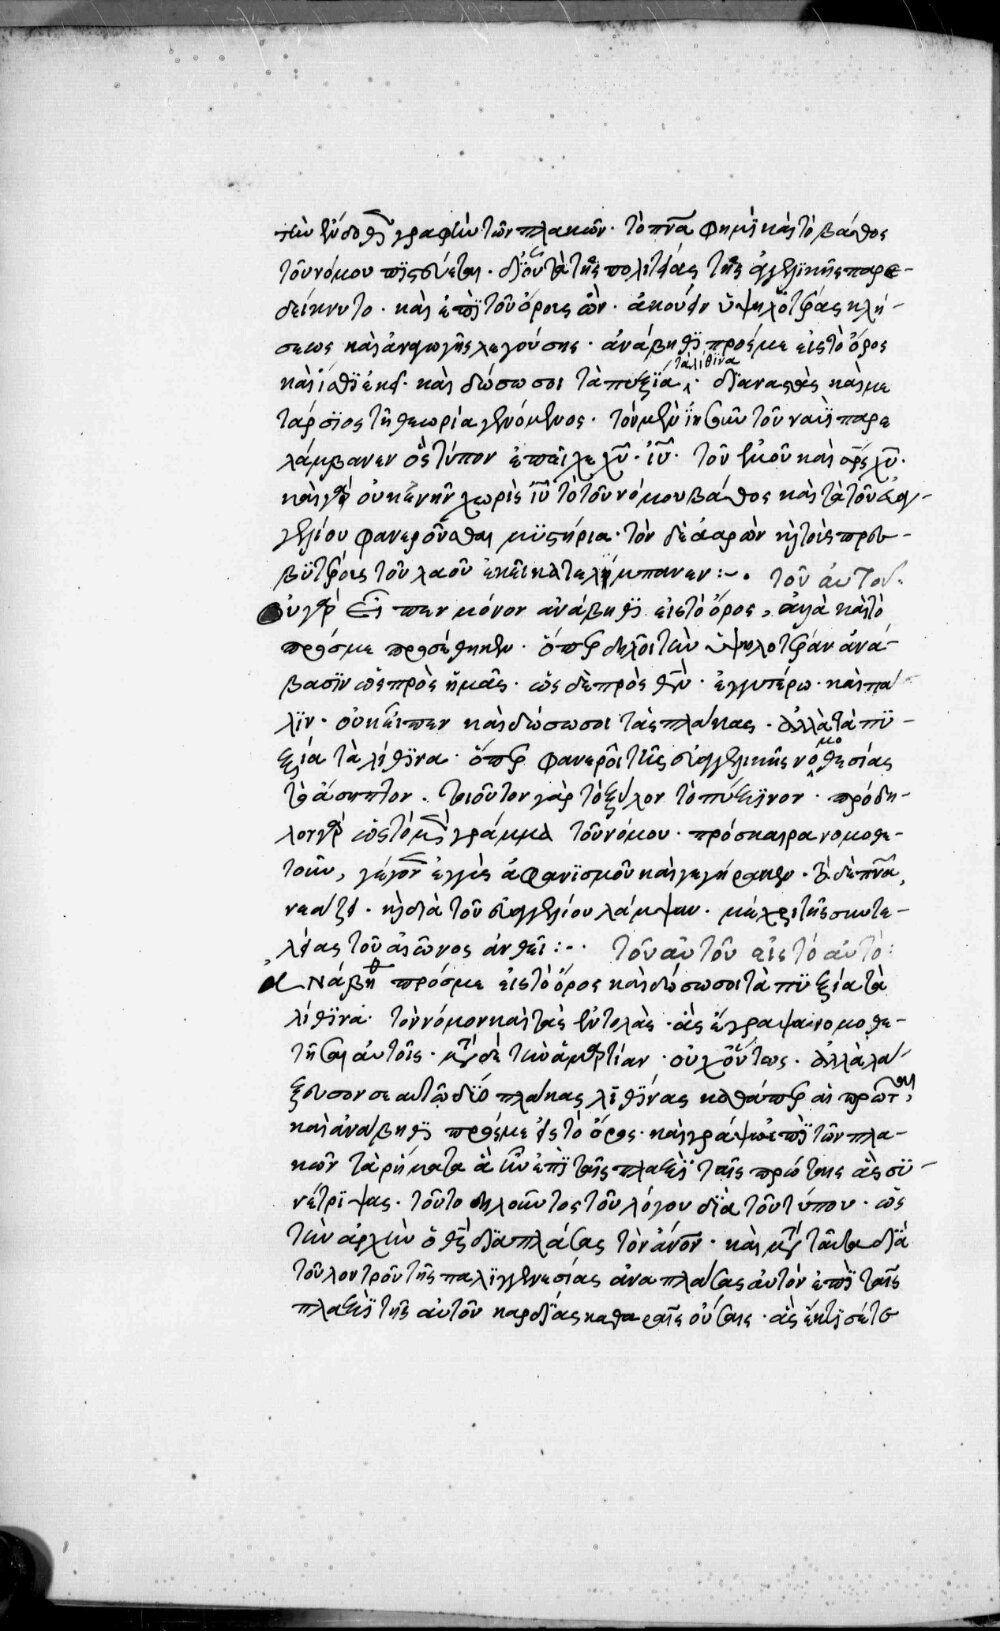 τὴν ἔνδοθεν γραφὴν τῶν πλακῶν · τὸ πνα φημὶ καὶ τὸ βάθος
τοῦ νόμου πιστεύεται · δι οὗ τὰ τῆς πολιτείας τῆς ἀγγελικῆς παρε-
δείκνυτο · καὶ ἐπὶ τοῦ ὄρους ὢν · ἀκούει ὑψηλοτέρας κλή-
σεως καὶ ἀναγωγῆς λεγούσης · ἀνάβηθι πρός με εἰς τὸ ὄρος
καὶ ἴσθι ἐκεῖ · καὶ δώσω σοι τὰ πυξία τὰ λίθινα · διαναστὰς καὶ με
τάρσιος τῇ θεωρία γενόμενος · τὸν μὲν ἰησοῦν τοῦ ναυῆ παρε
λάμβανεν ὃς τύπον ἐπεῖχε χυ · ιυ · τοῦ ἐμοῦ καὶ σρς χυ ·
καὶ γὰρ οὐκ ἐνῆν χωρὶς ιυ τὸ τοῦ νόμου βάθος καὶ τὰ τοῦ εὐαγ-
γελίου φανεροῦσθαι μυστήρια · τὸν δὲ ἀαρὼν σὺν τοῖς πρεσ-
βυτέροις τοῦ λαοῦ ἐκεῖ κατελίμπανεν :~ · τοῦ αὐτοῦ ·
Οὐ γὰρ εἶπεν μόνον ἀνάβηθι εἰς τὸ ὄρος, ἀλλὰ καὶ τὸ
πρός με προσέθηκεν · ὅπερ δηλοῖ τὴν ὑψηλοτέραν ἀνά-
βασιν ὡς πρὸς ἡμᾶς · ὡς δὲ πρὸς θν · ἐγγυτέρω · καὶ πά-
λιν · οὐκ εἶπεν καὶ δώσω σοι τὰς πλάκας · ἀλλὰ τὰ πυ-
ξία τὰ λίθινα · ὅπερ φανεροῖ τῆς εὐαγγελικῆς νομοθεσίας
τὸ ἄσηπτον · τοιοῦτον γὰρ τὸ ξύλον τὸ πύξινον · πρόδη-
λον γὰρ ὡς τὸ μὲν γράμμα τοῦ νόμου · πρόσκαιρα νομοθε-
τοῦν, γέγονεν ἐγγὺς ἀφανισμοῦ καὶ γεγήρακεν · τὸ δὲ πνα,
νεάζει · καὶ διὰ τοῦ εὐαγγελίου λάμψαν · μέχρι τῆς συντε-
λείας τοῦ αἰῶνος ἀνθεῖ :~ · τοῦ αὐτοῦ εἰς τὸ αὐτό :
Ἀνάβηθι πρός με εἰς τὸ ὄρος καὶ δώσω σοι τὰ πυξία τὰ
λίθινα · τὸν νόμον καὶ τὰς ἐντολὰς · ἃς ἔγραψα νομοθε-
τῆσαι αὐτοῖς · μετὰ δὲ τὴν ἁμαρτίαν · οὐχ οὕτως · ἀλλὰ λά-
ξευσον σεαυτῷ δύο πλάκας λιθίνας καθάπερ αἱ πρῶται,
καὶ ἀνάβηθι πρός με εἰς τὸ ὄρος · καὶ γράψω ἐπὶ τῶν πλα-
κῶν τὰ ρήματα ἃ ἦν ἐπὶ ταῖς πλαξὶ ταῖς πρώταις ἃς συ-
νέτριψας · τοῦτο δηλοῦντος τοῦ λόγου διὰ τοῦ τύπου · ὡς
τὴν ἀρχὴν ὁ θς διαπλάσας τὸν ανον · καὶ μετὰ ταῦτα διὰ
τοῦ λουτροῦ τῆς παλιγγενεσίας ἀναπλάσας αὐτὸν ἐπὶ ταῖς
πλαξὶ τῆς αὐτοῦ καρδίας καθαραῖς οὔσαις · ἃς